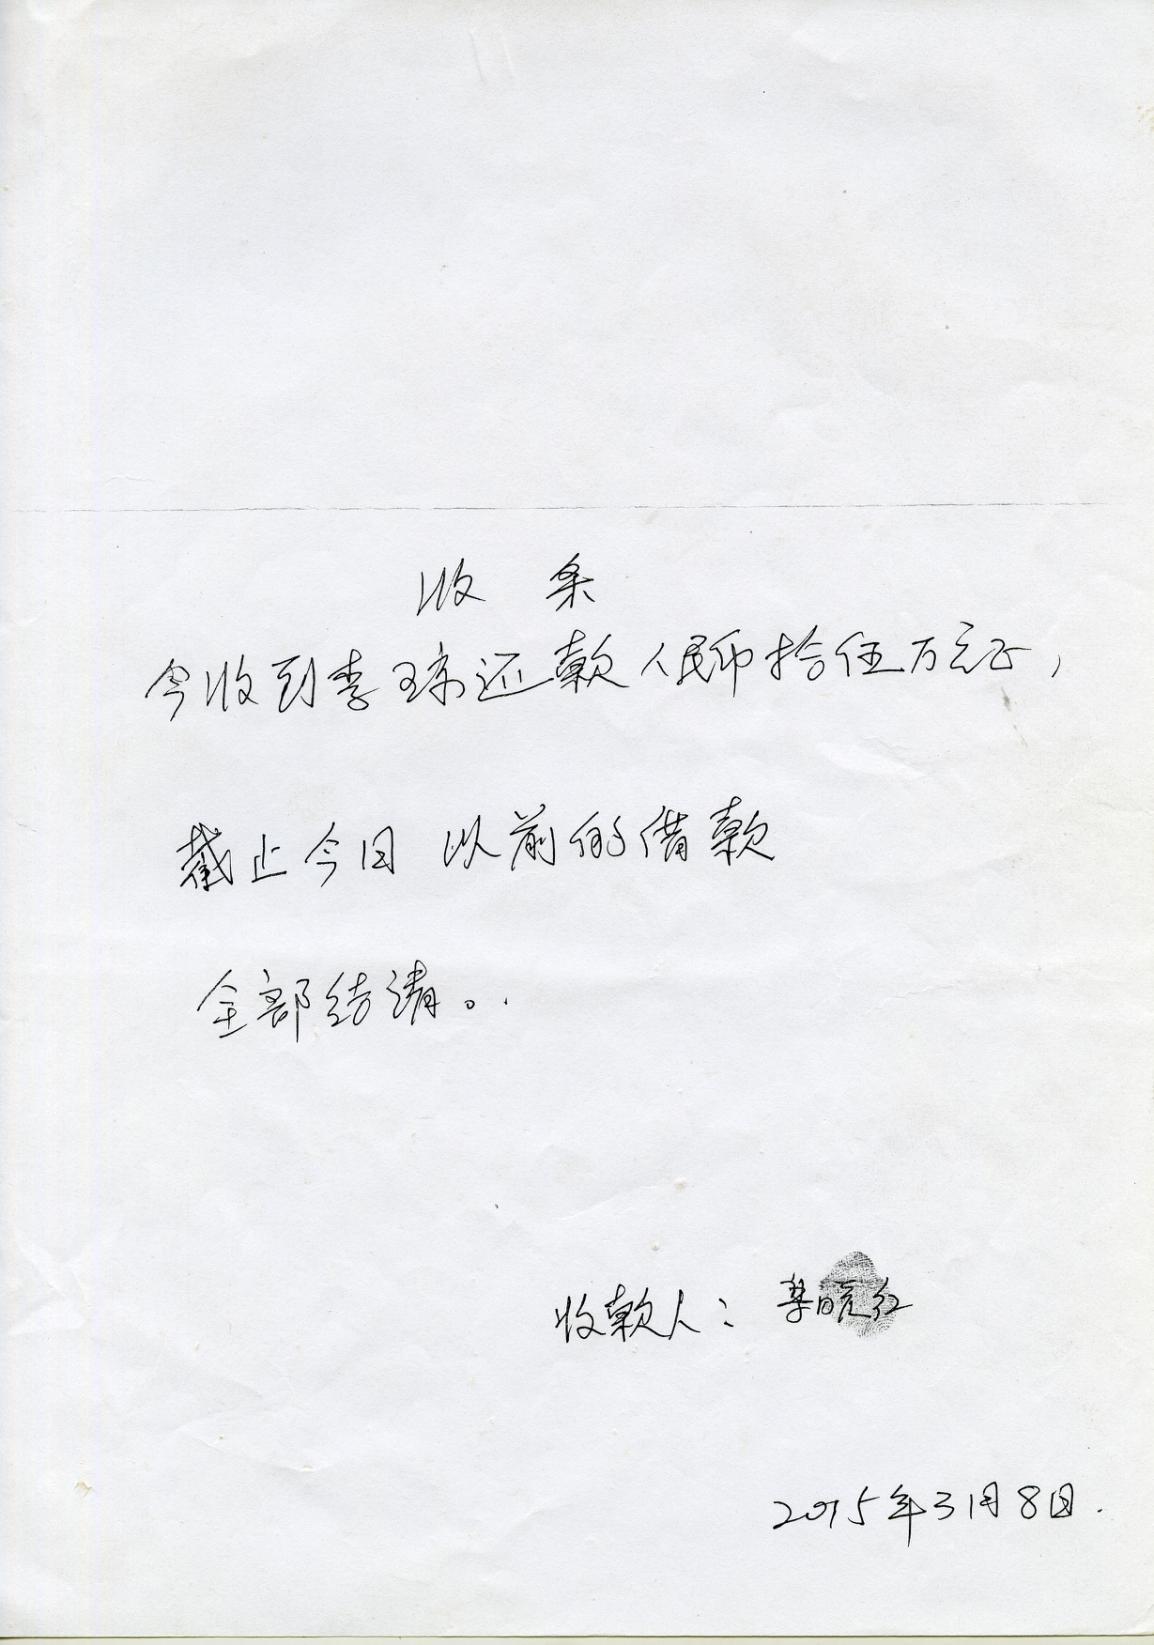 收 条
今收到李琼还款人民币拾伍万元正，
截止今日 以前的借款
全部结清。.
收款人：晓红
2015年3月8日.